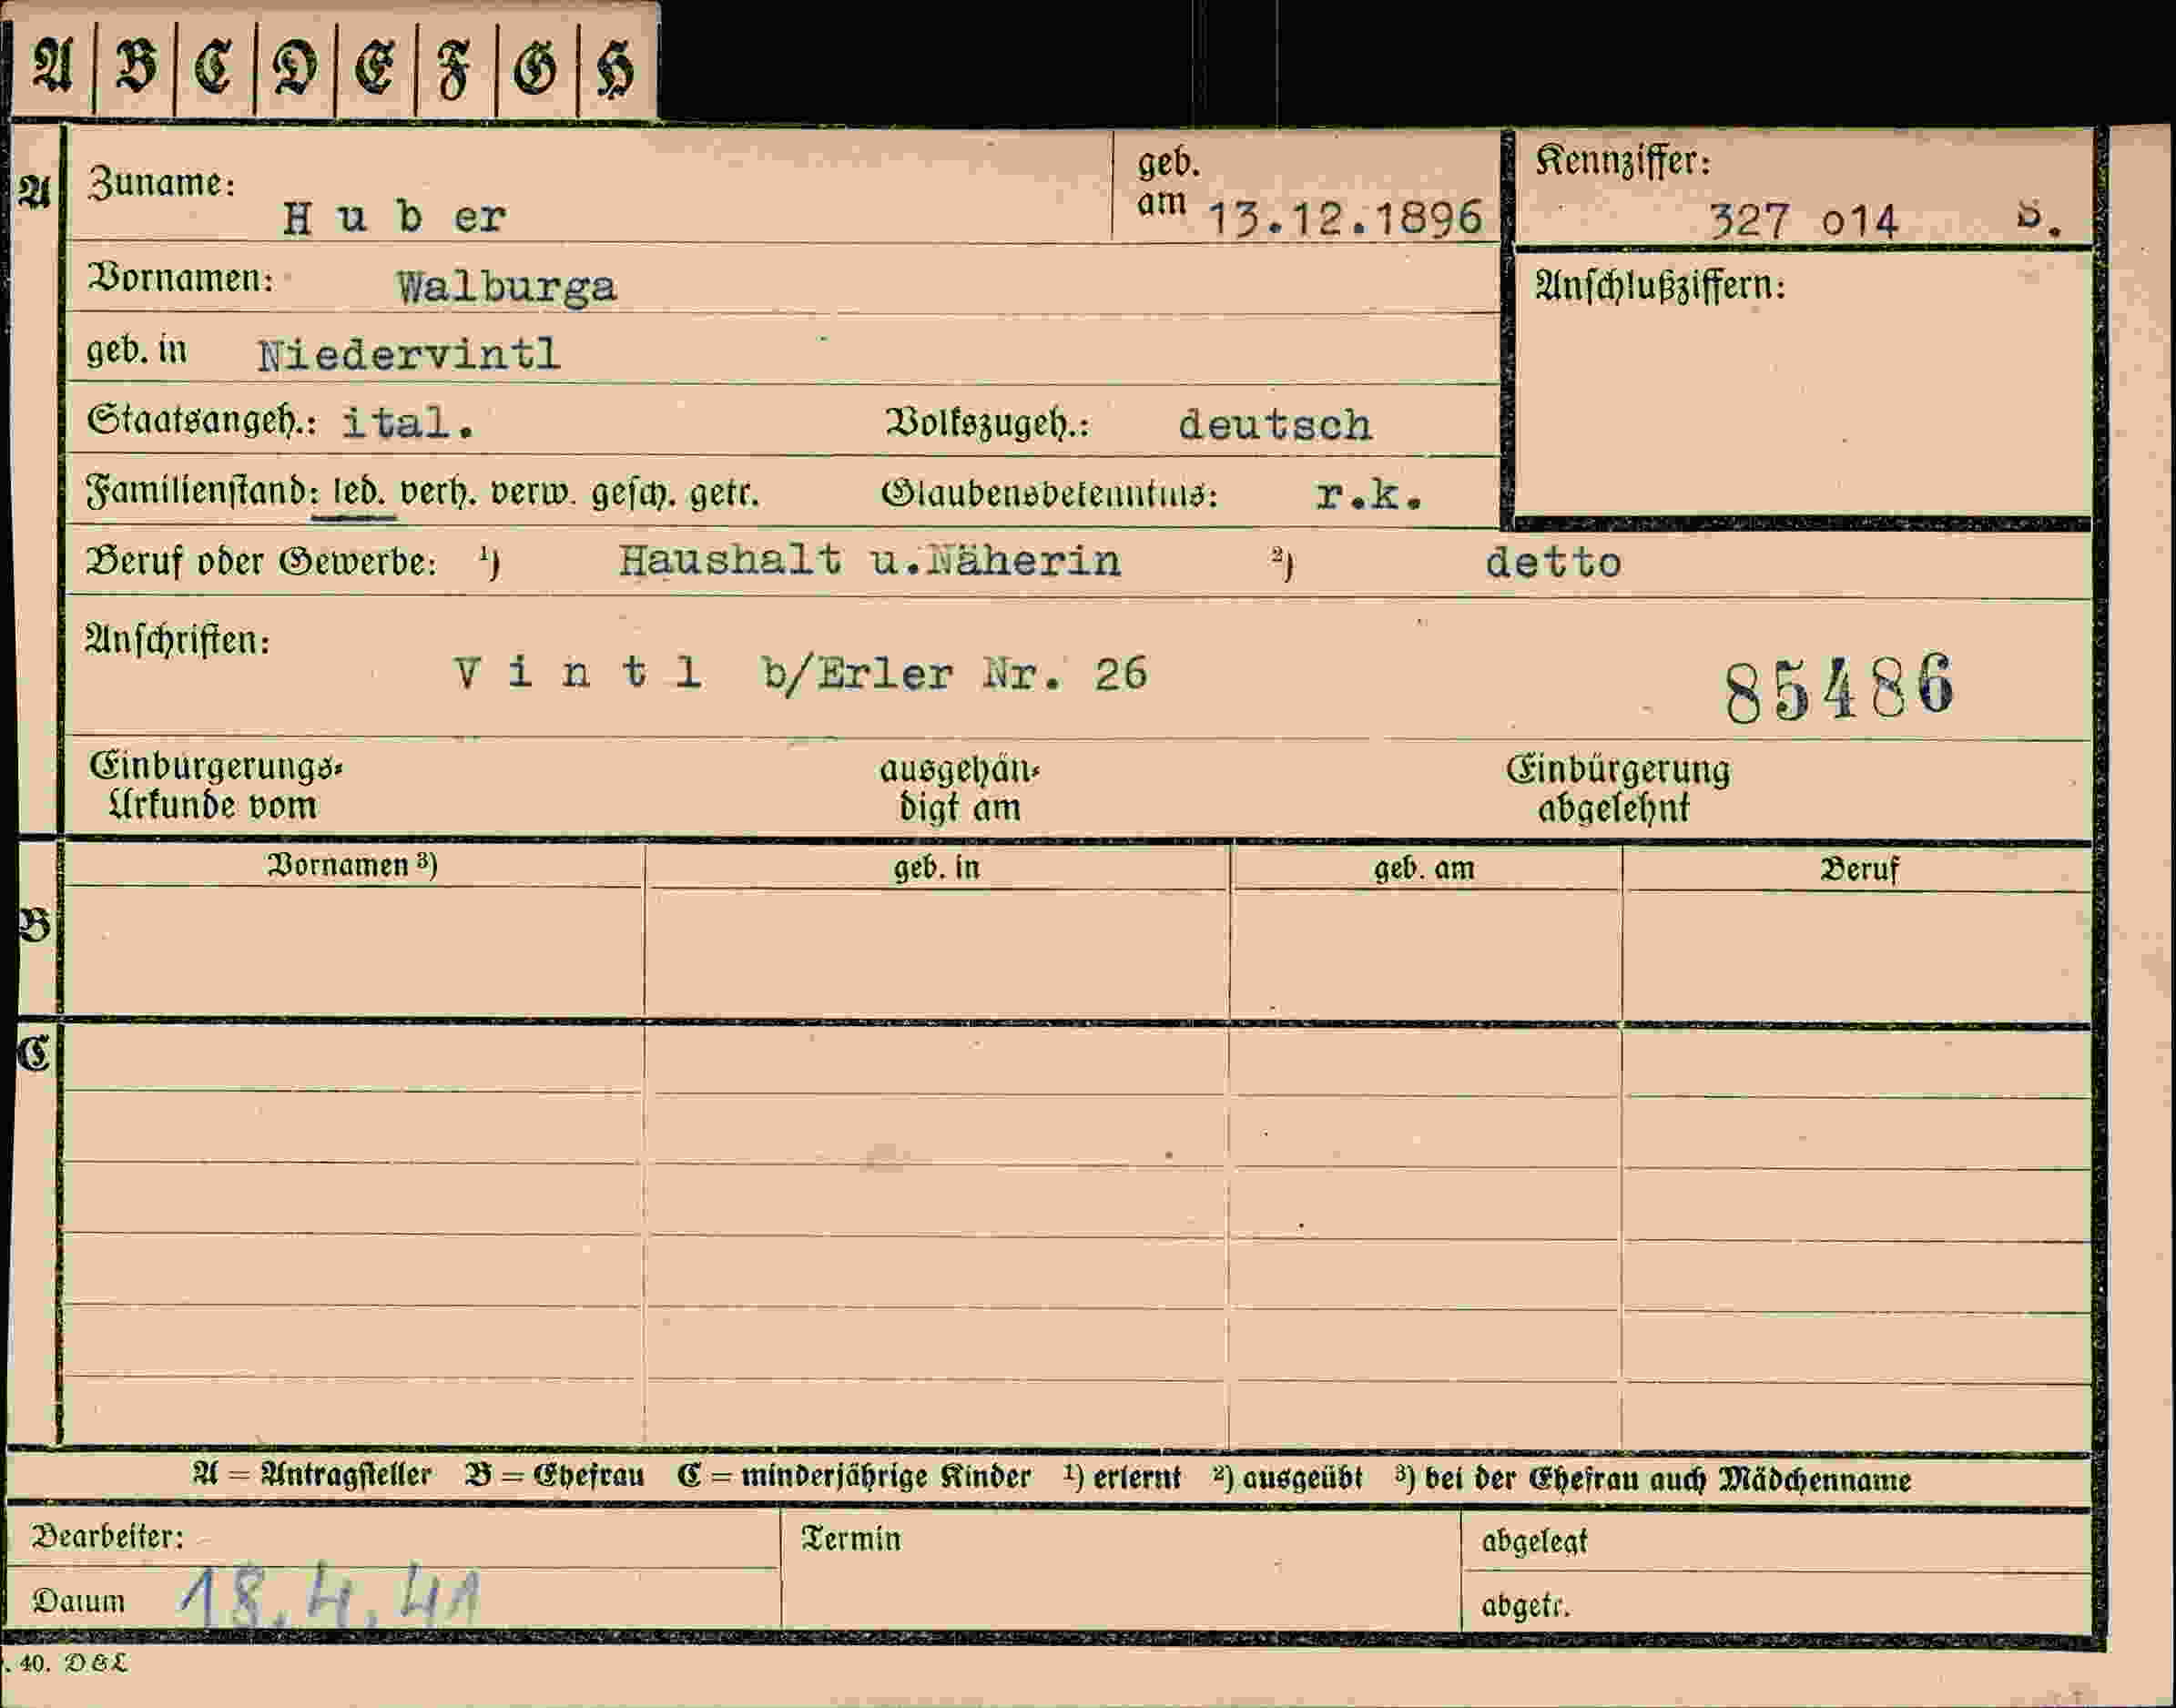 A B C D E F G H
A Zuname: H u b er geb. am 13.12.1896 Kennziffer: 327 o14 S.
Vornamen: Walburga Anschlußziffern:
geb. in Niedervintl
Staatsangeh.: ital. Volkszugeh.: deutsch
Familienstand: led. verh. verw. gesch. getr. Glaubensbekenntnis: r.k.
Beruf oder Gewerbe: ¹) Haushalt u.Näherin ²) detto
Anschriften: V i n t l b/Erler Nr. 26 85486
Einbürgerungs- ausgehän- Einbürgerung
Urkunde vom digt am abgelehnt
Vornamen ³) geb. in geb. am Beruf
B
C
A = Antragsteller B = Ehefrau C = minderjährige Kinder ¹) erlernt ²) ausgeübt ³) bei der Ehefrau auch Mädchenname
Bearbeiter: Termin abgelegt
Datum 18.4.41 abgetr.
. 40. D&L